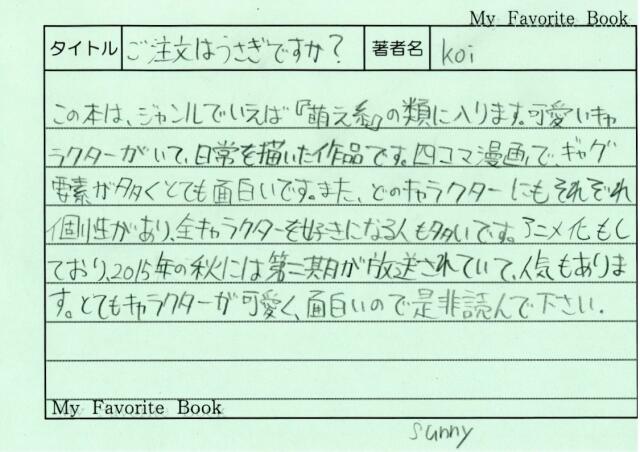 My Favorite Book
タイトル ご注文はうさぎですか? 著者名 koi
この本は、ジャンルでいえば『萌え系』の類に入ります。可愛いキャ
ラクターがいて、日常を描いた作品です。四コマ漫画で、ギャグ
要素が多くとても面白いです。また、どのキャラクターにもそれぞれ
個性があり、全キャラクターを好きになる人も多いです。アニメ化もし
ており、2015年の秋には第二期が放送されていて、人気もありま
す。とてもキャラクターが可愛く、面白いので是非読んで下さい.
My Favorite Book
sunny